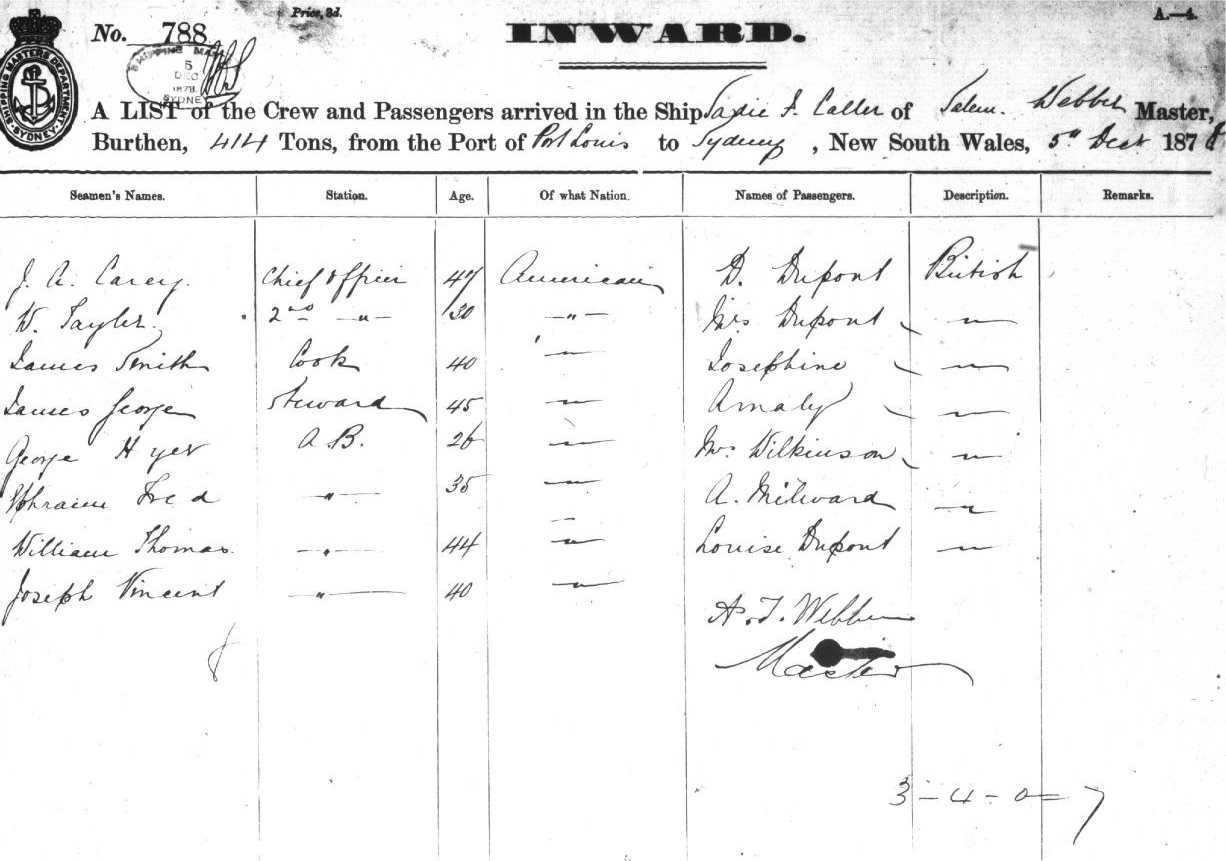 Price, 3d.
A.—4.
No. 788
INWARD.
SHIPPING MASTERS DEPARTMENT SYDNEY
SHIPPING MAS
5
DEC
1878
SYDNEY
A LIST of the Crew and Passengers arrived in the Ship Sadie F. Caller of Salem. Webber Master,
Burthen, 414 Tons, from the Port of Port Louis to Sydney, New South Wales, 5th Decr 1878
Seamen's Names. Station. Age. Of what Nation. Names of Passengers. Description. Remarks.
J. A. Carey. Chief Officer 47 American D. Dupont British
W. Tayler. 2nd —"— 30 —"— Mrs Dupont —"—
James Smith Cook 40 —"— Josephine —"—
James George Steward 45 —"— Amaly —"—
George Hyer A B. 26 —"— Mrs Wilkinson —"—
Ephraim Fred —"— 35 —"— A. Milward —"—
William Thomas. —"— 44 —"— Louise Dupont —"—
Joseph Vincent —"— 40 —"—
A. T. Webber
Master
8
3-4-0=7